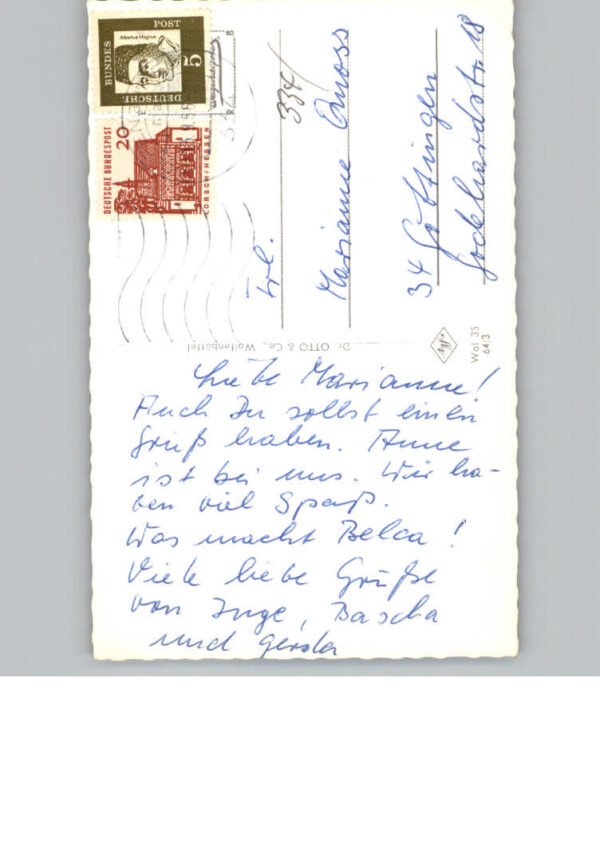 Liebe Marianne!
Auch Du sollst einen
Gruß haben. Anne
ist bei uns. Wir ha-
ben viel Spaß.
Was macht Belca!
Viele liebe Grüße
von Inge, Bascha
und Gerda
Frl.
334/
Marianne
34 Göttingen
18
Dr. OTTO & Co., Wolfenbüttel
Wol 35
64/3
DEUTSCHE
BUNDES
POST
5
Albertus Magnus
DEUTSCHE BUNDESPOST
20
LORSCH/HESSEN